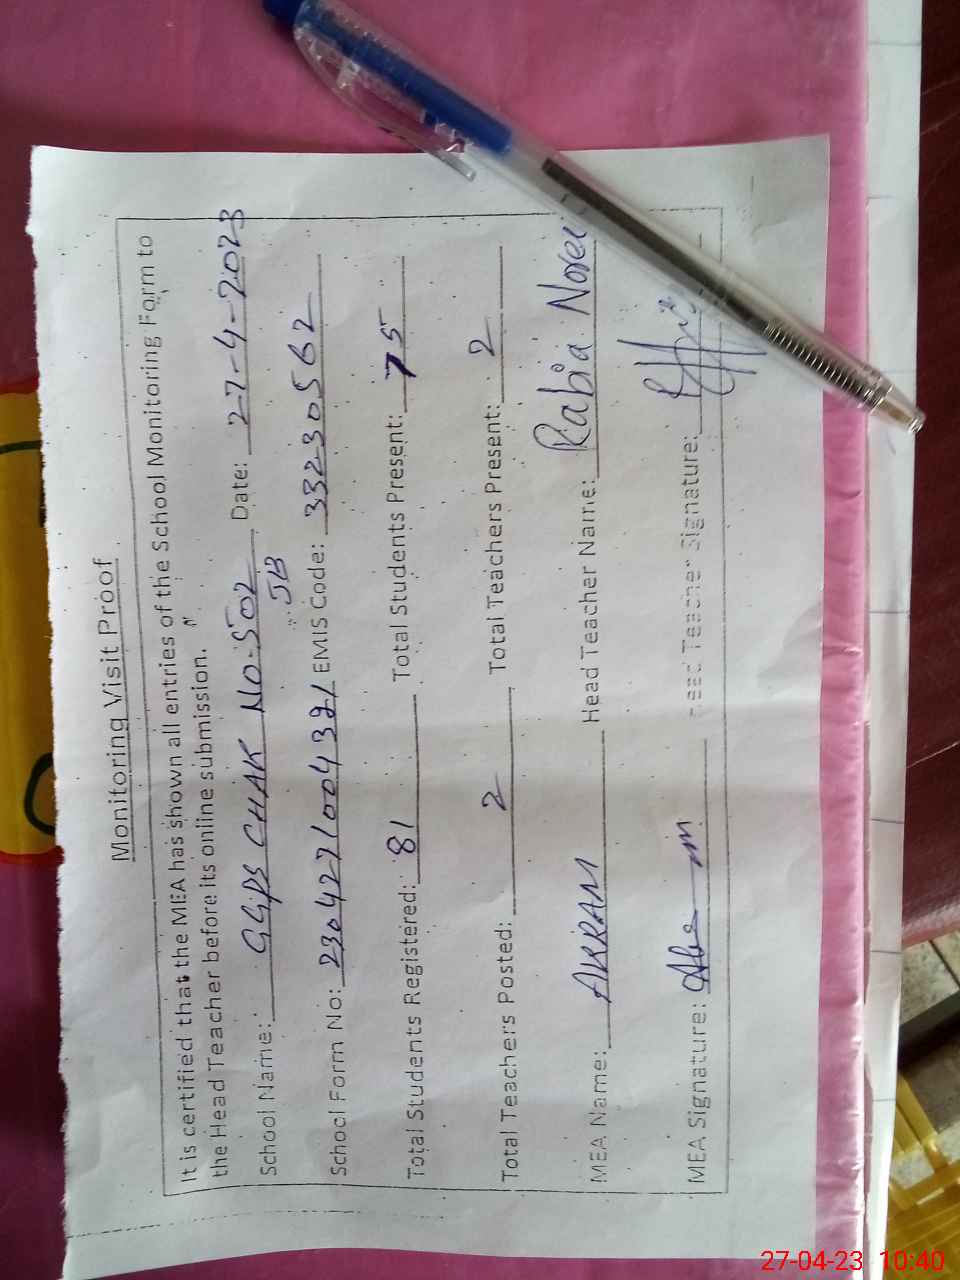 Monitoring Visit Proof
It is certified that the MEA has shown all entries of the School Monitoring Form to
the Head Teacher before its online submission.
School Name: GGPS CHAK NO-502 JB Date: 27-4-2023
School Form No: EMIS Code: 33230562
Total Students Registered: 81 Total Students Present: 75
Total Teachers Posted: 2 Total Teachers Present: 2
MEA Name: AKRAM Head Teacher Name: Rabia Noreen
MEA Signature: Head Teacher Signature:
27-04-23 10:40